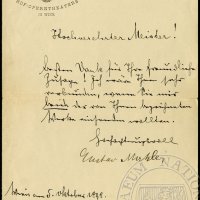 HOFOPERNTHEATERS
IN WIEN.
Hochverehrter Meister!
Besten Dank für Ihre freundliche
Zusage! Ich wäre Ihnen sehr
verbunden, wenn Sie mir
der von Ihnen
Werke einsenden wollten.
Hochachtungsvoll
Gustav Mahler
Wien am 5. Oktober 1898.